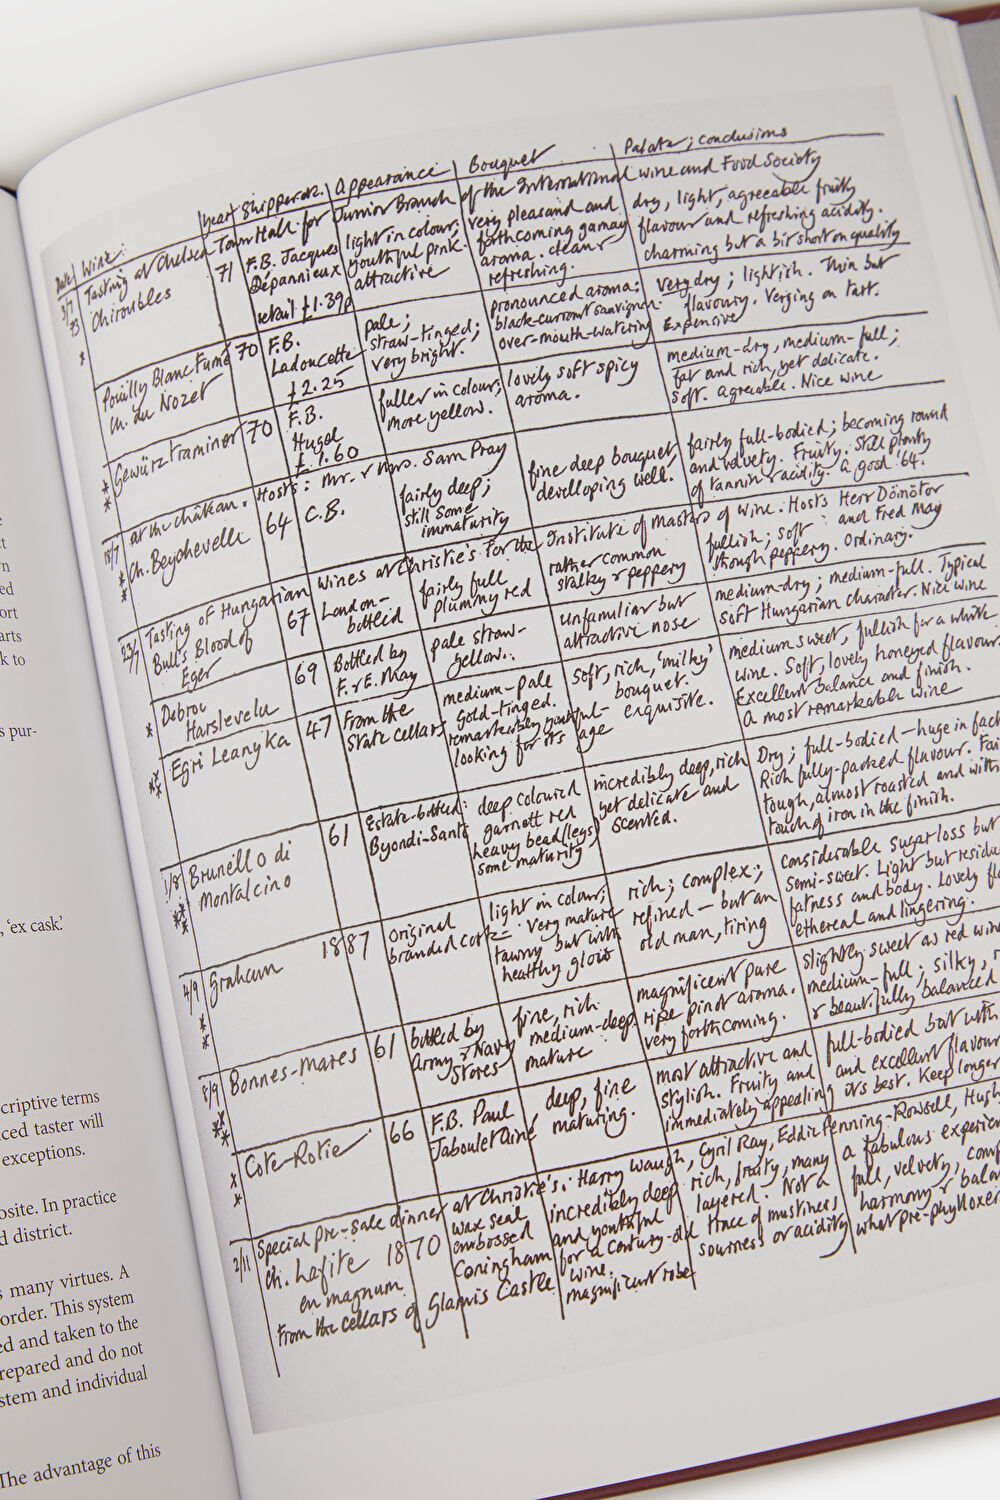 t
n
ed
ort
arts
k to
s pur-
, ‘ex cask.’
criptive terms
ced taster will
exceptions.
osite. In practice
d district.
s many virtues. A
order. This system
ed and taken to the
repared and do not
stem and individual
The advantage of this
Date Wine. Year Shipper etc. Appearance Bouquet Palate; conclusions
3/7 73 Tasting at Chelsea Town Hall for Junior Branch of the International Wine and Food Society
* Chiroubles 71 F.B. Jacques Dépannieux retail £1.39p
light in colour; youthful pink. attractive
very pleasant and forthcoming gamay aroma. clean & refreshing.
dry, light, agreeable fruity flavour and refreshing acidity. charming but a bit short on quality
Pouilly Blanc Fumé Ch. du Nozet 70 F.B. Ladoucette £2.25
pale; straw-tinged; very bright.
pronounced aroma: black-currant sauvignon. over-mouth-watering
very dry; lightish. Thin but flavoury. Verging on tart. Expensive
** Gewürztraminer 70 F.B. Hugel £1.60
fuller in colour; more yellow.
lovely soft spicy aroma.
medium-dry, medium-full; fat and rich, yet delicate. soft. agreeable. Nice wine
18/7 At the château. Hosts: Mr. & Mrs. Sam Pray
** Ch. Beychevelle 64 C.B.
fairly deep; still some immaturity
fine deep bouquet, developing well.
fairly full-bodied; becoming round and velvety. Fruity. Still plenty of tannin & acidity. A good '64.
23/7 Tasting of Hungarian Wines at Christie's for the Institute of Masters of Wine. Hosts Herr Dömötör and Fred May
Bull's Blood of Eger 67 London-bottled
fairly full plummy red
rather common stalky & peppery
fullish; soft though peppery. Ordinary.
* Debroi Harslevelu 69 Bottled by F. & E. May
pale straw-yellow.
unfamiliar but attractive nose
medium-dry; medium-full. Typical soft Hungarian character. Nice wine
*** Egri Leanyka 47 From the State cellars
medium-pale gold-tinged. remarkably youthful-looking for its age
soft, rich, 'milky' bouquet. exquisite.
medium sweet, fullish for a white wine. Soft, lovely honeyed flavour. Excellent balance and finish. A most remarkable wine
1/8 *** Brunello di Montalcino 61 Estate-bottled: Byondi-Santi
deep coloured garnett red heavy bead (legs) some maturity
incredibly deep, rich yet delicate and scented.
Dry; full-bodied – huge in fact Rich fully-packed flavour. Fai tough, almost roasted and with touch of iron in the finish.
4/9 ** Graham 1887 Original branded cork
light in colour; very mature tawny but with healthy glow
rich; complex; refined – but an old man, tiring
considerable sugar loss but semi-sweet. Light but residu fatness and body. Lovely fl ethereal and lingering.
8/9 *** Bonnes-Mares 61 bottled by Army & Navy Stores
fine, rich medium-deep. mature
magnificent pure ripe pinot aroma. very forthcoming.
slightly sweet as red wine medium-full; silky, r & beautifully balanced
** Cote-Rotie 66 F.B. Paul Jaboulet Aîné
deep, fine maturing.
most attractive and stylish. Fruity and immediately appealing
full-bodied but with and excellent flavour its best. Keep longer
2/11 Special pre-sale dinner at Christie's. Harry Waugh, Cyril Ray, Eddie Penning-Rowsell, Hugh
Ch. Lafite 1870 en magnum From the cellars of Glamis Castle
wax seal embossed Coningham
incredibly deep and youthful for a century-old wine. magnificent robe
rich, fruity, many layered. Not a trace of mustiness sourness or acidity
a fabulous experien full, velvety, comp harmony & balan what pre-phylloxer